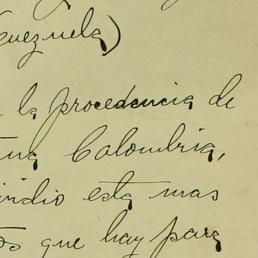 enezuela)
la procedencia de
Colombia,
indio esta mas
que hay para